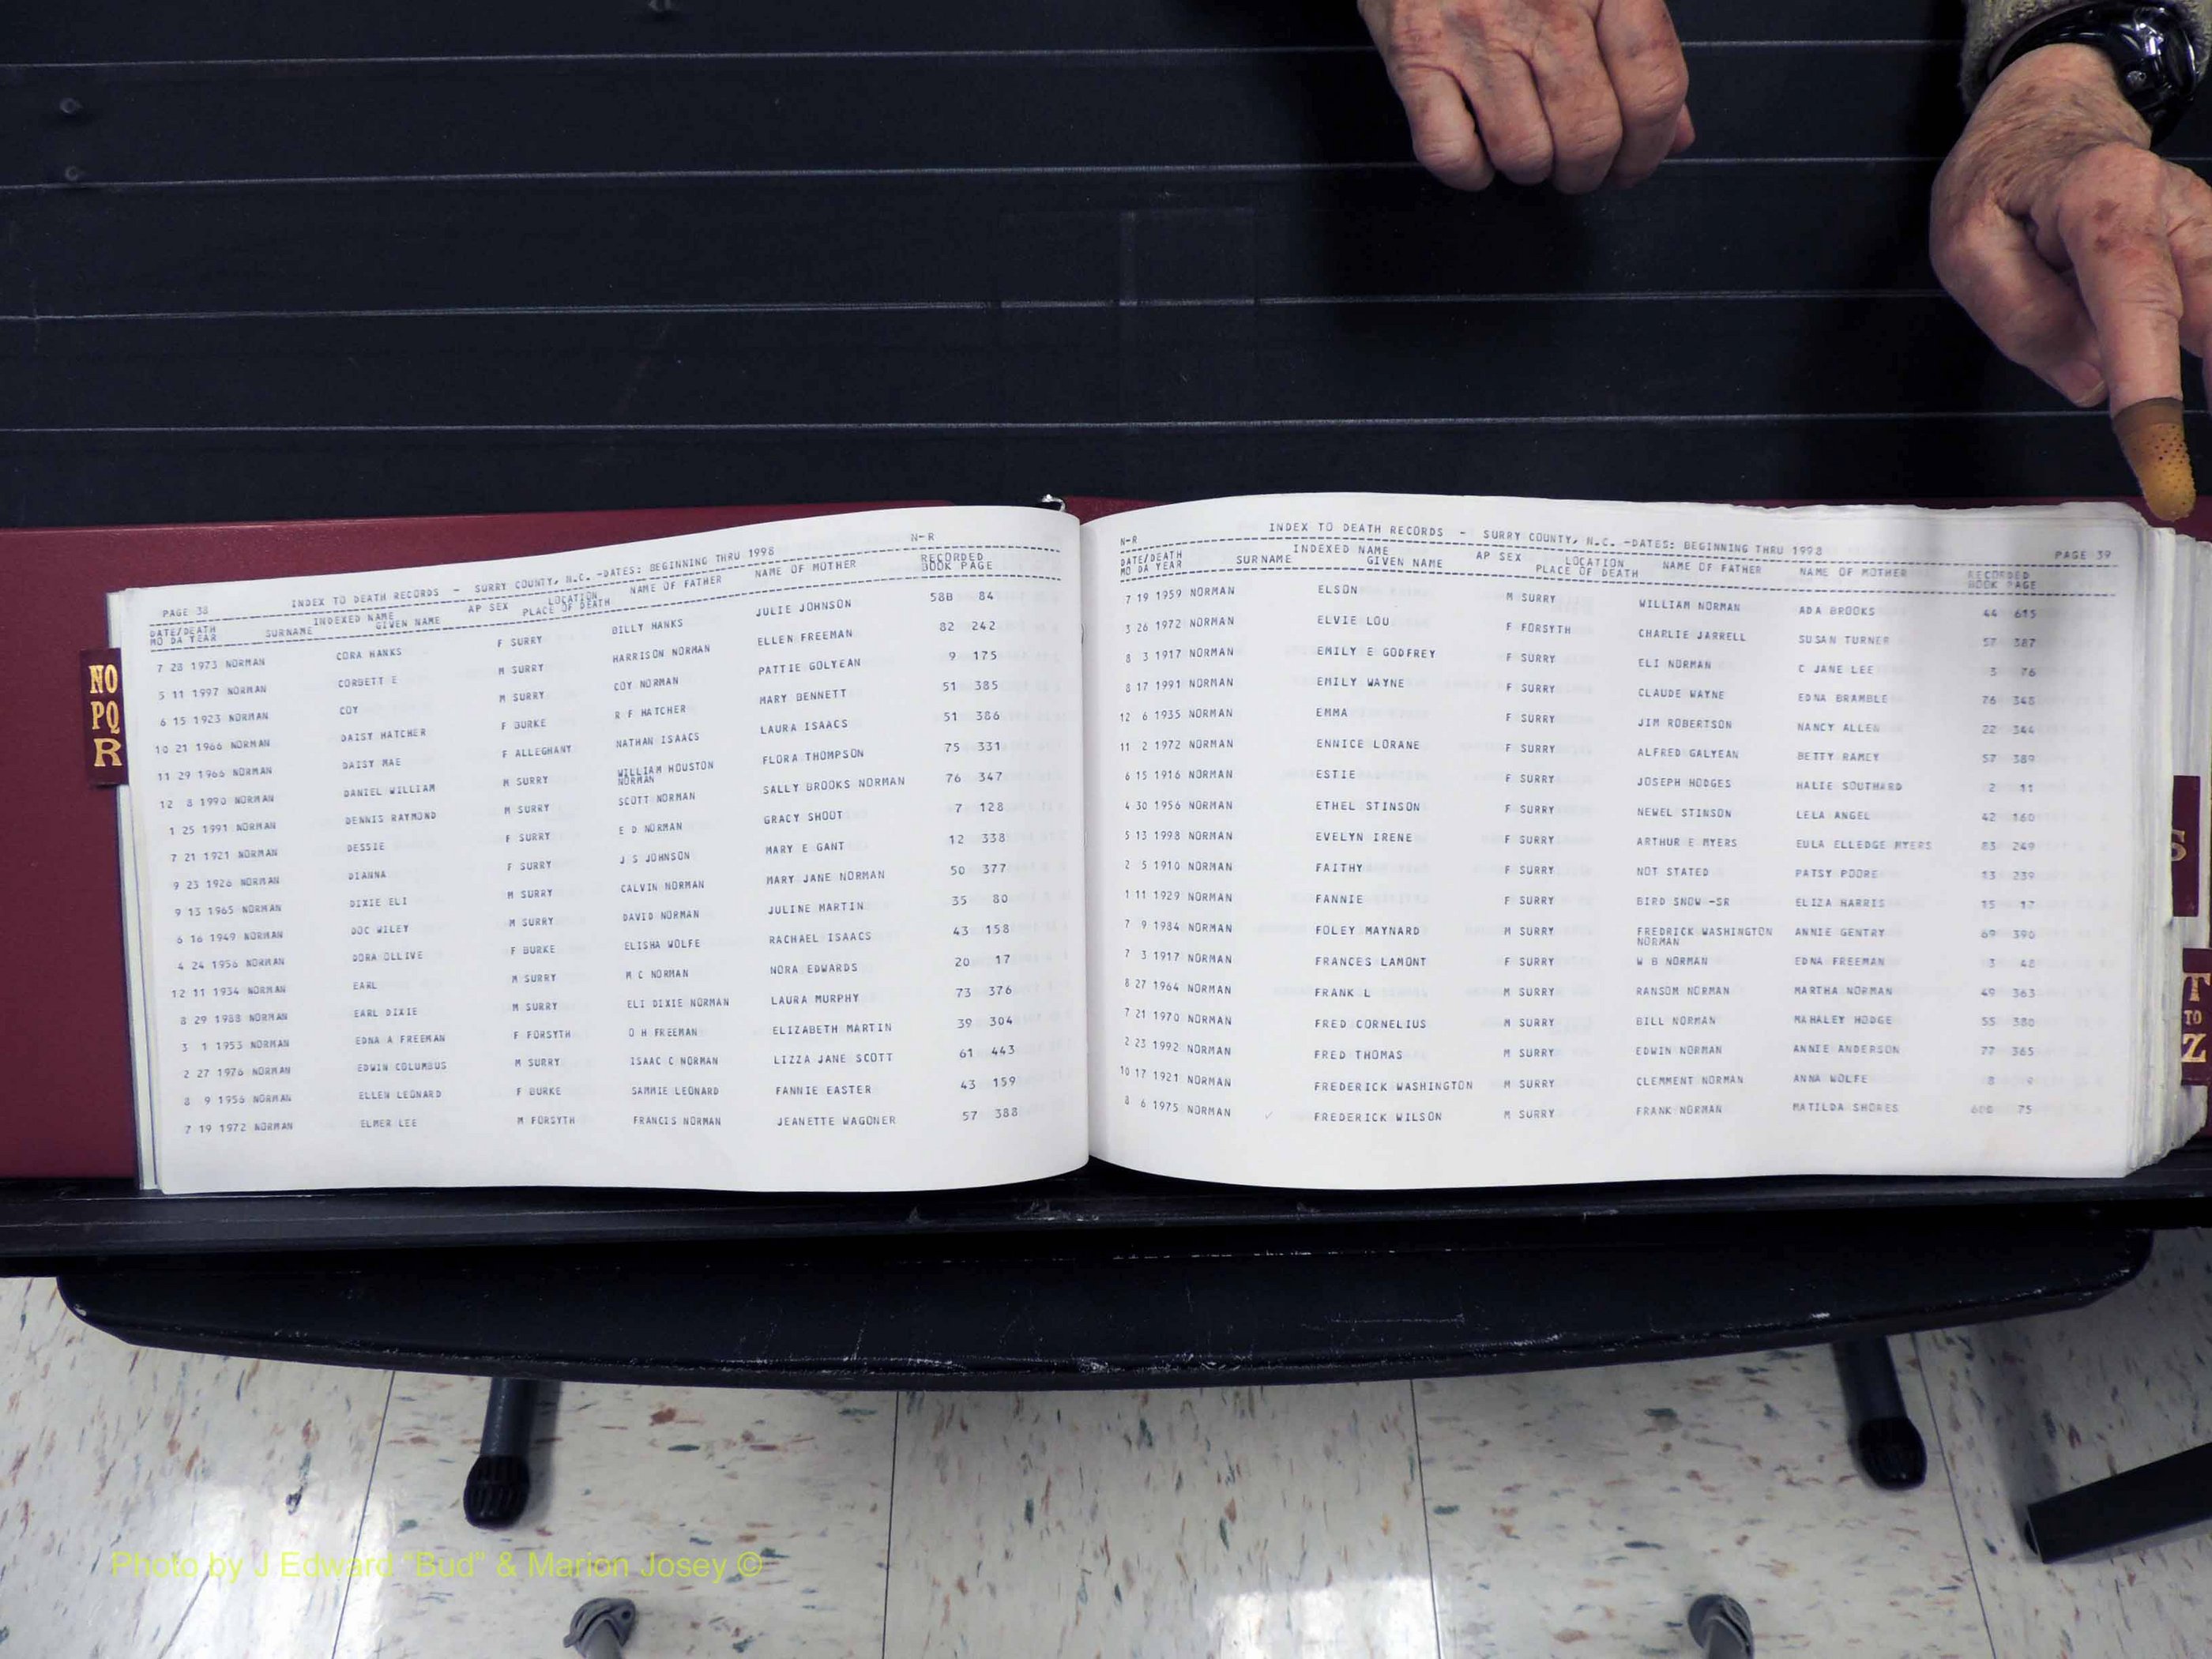 PAGE 38 INDEX TO DEATH RECORDS - SURRY COUNTY, N.C. -DATES: BEGINNING THRU 1998 N-R
DATE/DEATH INDEXED NAME AP SEX LOCATION NAME OF FATHER NAME OF MOTHER RECORDED
MO DA YEAR SURNAME GIVEN NAME PLACE OF DEATH BOOK PAGE
7 28 1973 NORMAN CORA HANKS F SURRY BILLY HANKS JULIE JOHNSON 58B 84
5 11 1997 NORMAN CORBETT E M SURRY HARRISON NORMAN ELLEN FREEMAN 82 242
6 15 1923 NORMAN COY M SURRY COY NORMAN PATTIE GOLYEAN 9 175
10 21 1966 NORMAN DAISY HATCHER F BURKE R F HATCHER MARY BENNETT 51 385
11 29 1966 NORMAN DAISY MAE F ALLEGHANY NATHAN ISAACS LAURA ISAACS 51 386
12 8 1990 NORMAN DANIEL WILLIAM M SURRY WILLIAM HOUSTON FLORA THOMPSON 75 331
NORMAN
1 25 1991 NORMAN DENNIS RAYMOND M SURRY SCOTT NORMAN SALLY BROOKS NORMAN 76 347
7 21 1921 NORMAN DESSIE F SURRY E D NORMAN GRACY SHOOT 7 128
9 23 1926 NORMAN DIANNA F SURRY J S JOHNSON MARY E GANT 12 338
9 13 1965 NORMAN DIXIE ELI M SURRY CALVIN NORMAN MARY JANE NORMAN 50 377
6 16 1949 NORMAN DOC WILEY M SURRY DAVID NORMAN JULINE MARTIN 35 80
4 24 1956 NORMAN DORA OLLIVE F BURKE ELISHA WOLFE RACHAEL ISAACS 43 158
12 11 1934 NORMAN EARL M SURRY M C NORMAN NORA EDWARDS 20 17
8 29 1988 NORMAN EARL DIXIE M SURRY ELI DIXIE NORMAN LAURA MURPHY 73 376
3 1 1953 NORMAN EDNA A FREEMAN F FORSYTH O H FREEMAN ELIZABETH MARTIN 39 304
2 27 1976 NORMAN EDWIN COLUMBUS M SURRY ISAAC C NORMAN LIZZA JANE SCOTT 61 443
8 9 1956 NORMAN ELLEN LEONARD F BURKE SAMMIE LEONARD FANNIE EASTER 43 159
7 19 1972 NORMAN ELMER LEE M FORSYTH FRANCIS NORMAN JEANETTE WAGONER 57 388
NO
PQ
R
N-R INDEX TO DEATH RECORDS - SURRY COUNTY, N.C. -DATES: BEGINNING THRU 1998 PAGE 39
DATE/DEATH INDEXED NAME AP SEX LOCATION NAME OF FATHER NAME OF MOTHER RECORDED
MO DA YEAR SURNAME GIVEN NAME PLACE OF DEATH BOOK PAGE
7 19 1959 NORMAN ELSON M SURRY WILLIAM NORMAN ADA BROOKS 44 615
3 26 1972 NORMAN ELVIE LOU F FORSYTH CHARLIE JARRELL SUSAN TURNER 57 387
8 3 1917 NORMAN EMILY E GODFREY F SURRY ELI NORMAN C JANE LEE 3 76
8 17 1991 NORMAN EMILY WAYNE F SURRY CLAUDE WAYNE EDNA BRAMBLE 76 348
12 6 1935 NORMAN EMMA F SURRY JIM ROBERTSON NANCY ALLEN 22 344
11 2 1972 NORMAN ENNICE LORANE F SURRY ALFRED GALYEAN BETTY RAMEY 57 389
6 15 1916 NORMAN ESTIE F SURRY JOSEPH HODGES HALIE SOUTHARD 2 11
4 30 1956 NORMAN ETHEL STINSON F SURRY NEWEL STINSON LELA ANGEL 42 160
5 13 1998 NORMAN EVELYN IRENE F SURRY ARTHUR E MYERS EULA ELLEDGE MYERS 83 249
2 5 1910 NORMAN FAITHY F SURRY NOT STATED PATSY POORE 13 239
1 11 1929 NORMAN FANNIE F SURRY BIRD SNOW -SR ELIZA HARRIS 15 17
7 9 1984 NORMAN FOLEY MAYNARD M SURRY FREDRICK WASHINGTON ANNIE GENTRY 69 390
NORMAN
7 3 1917 NORMAN FRANCES LAMONT F SURRY W B NORMAN EDNA FREEMAN 3 48
8 27 1964 NORMAN FRANK L M SURRY RANSOM NORMAN MARTHA NORMAN 49 363
7 21 1970 NORMAN FRED CORNELIUS M SURRY BILL NORMAN MAHALEY HODGE 55 380
2 23 1992 NORMAN FRED THOMAS M SURRY EDWIN NORMAN ANNIE ANDERSON 77 365
10 17 1921 NORMAN FREDERICK WASHINGTON M SURRY CLEMMENT NORMAN ANNA WOLFE 8 9
8 6 1975 NORMAN FREDERICK WILSON M SURRY FRANK NORMAN MATILDA SHORES 75
S
T
TO
Z
Photo by J Edward "Bud" & Marion Josey ©